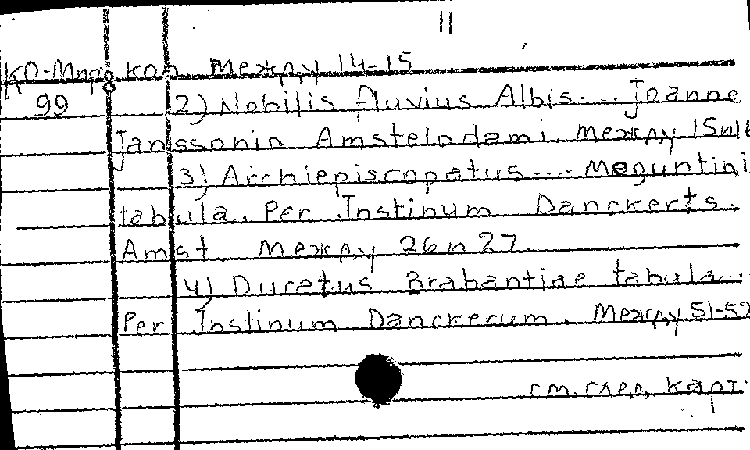 11
КО-Мпро кол. Между 14-15
99 2) Nobilis fluvius Albis... Joanne
Janssonio Amstelodami. Между 15 и 16
3) Archiepiscopatus... Moguntini
tabula. Per Jnstinum Danckerts.
Amst Между 26 и 27.
4) Ducatus Brabantiae tabula..
Per Jnstinum Danckerum. Между 51-52
см. след. карт.